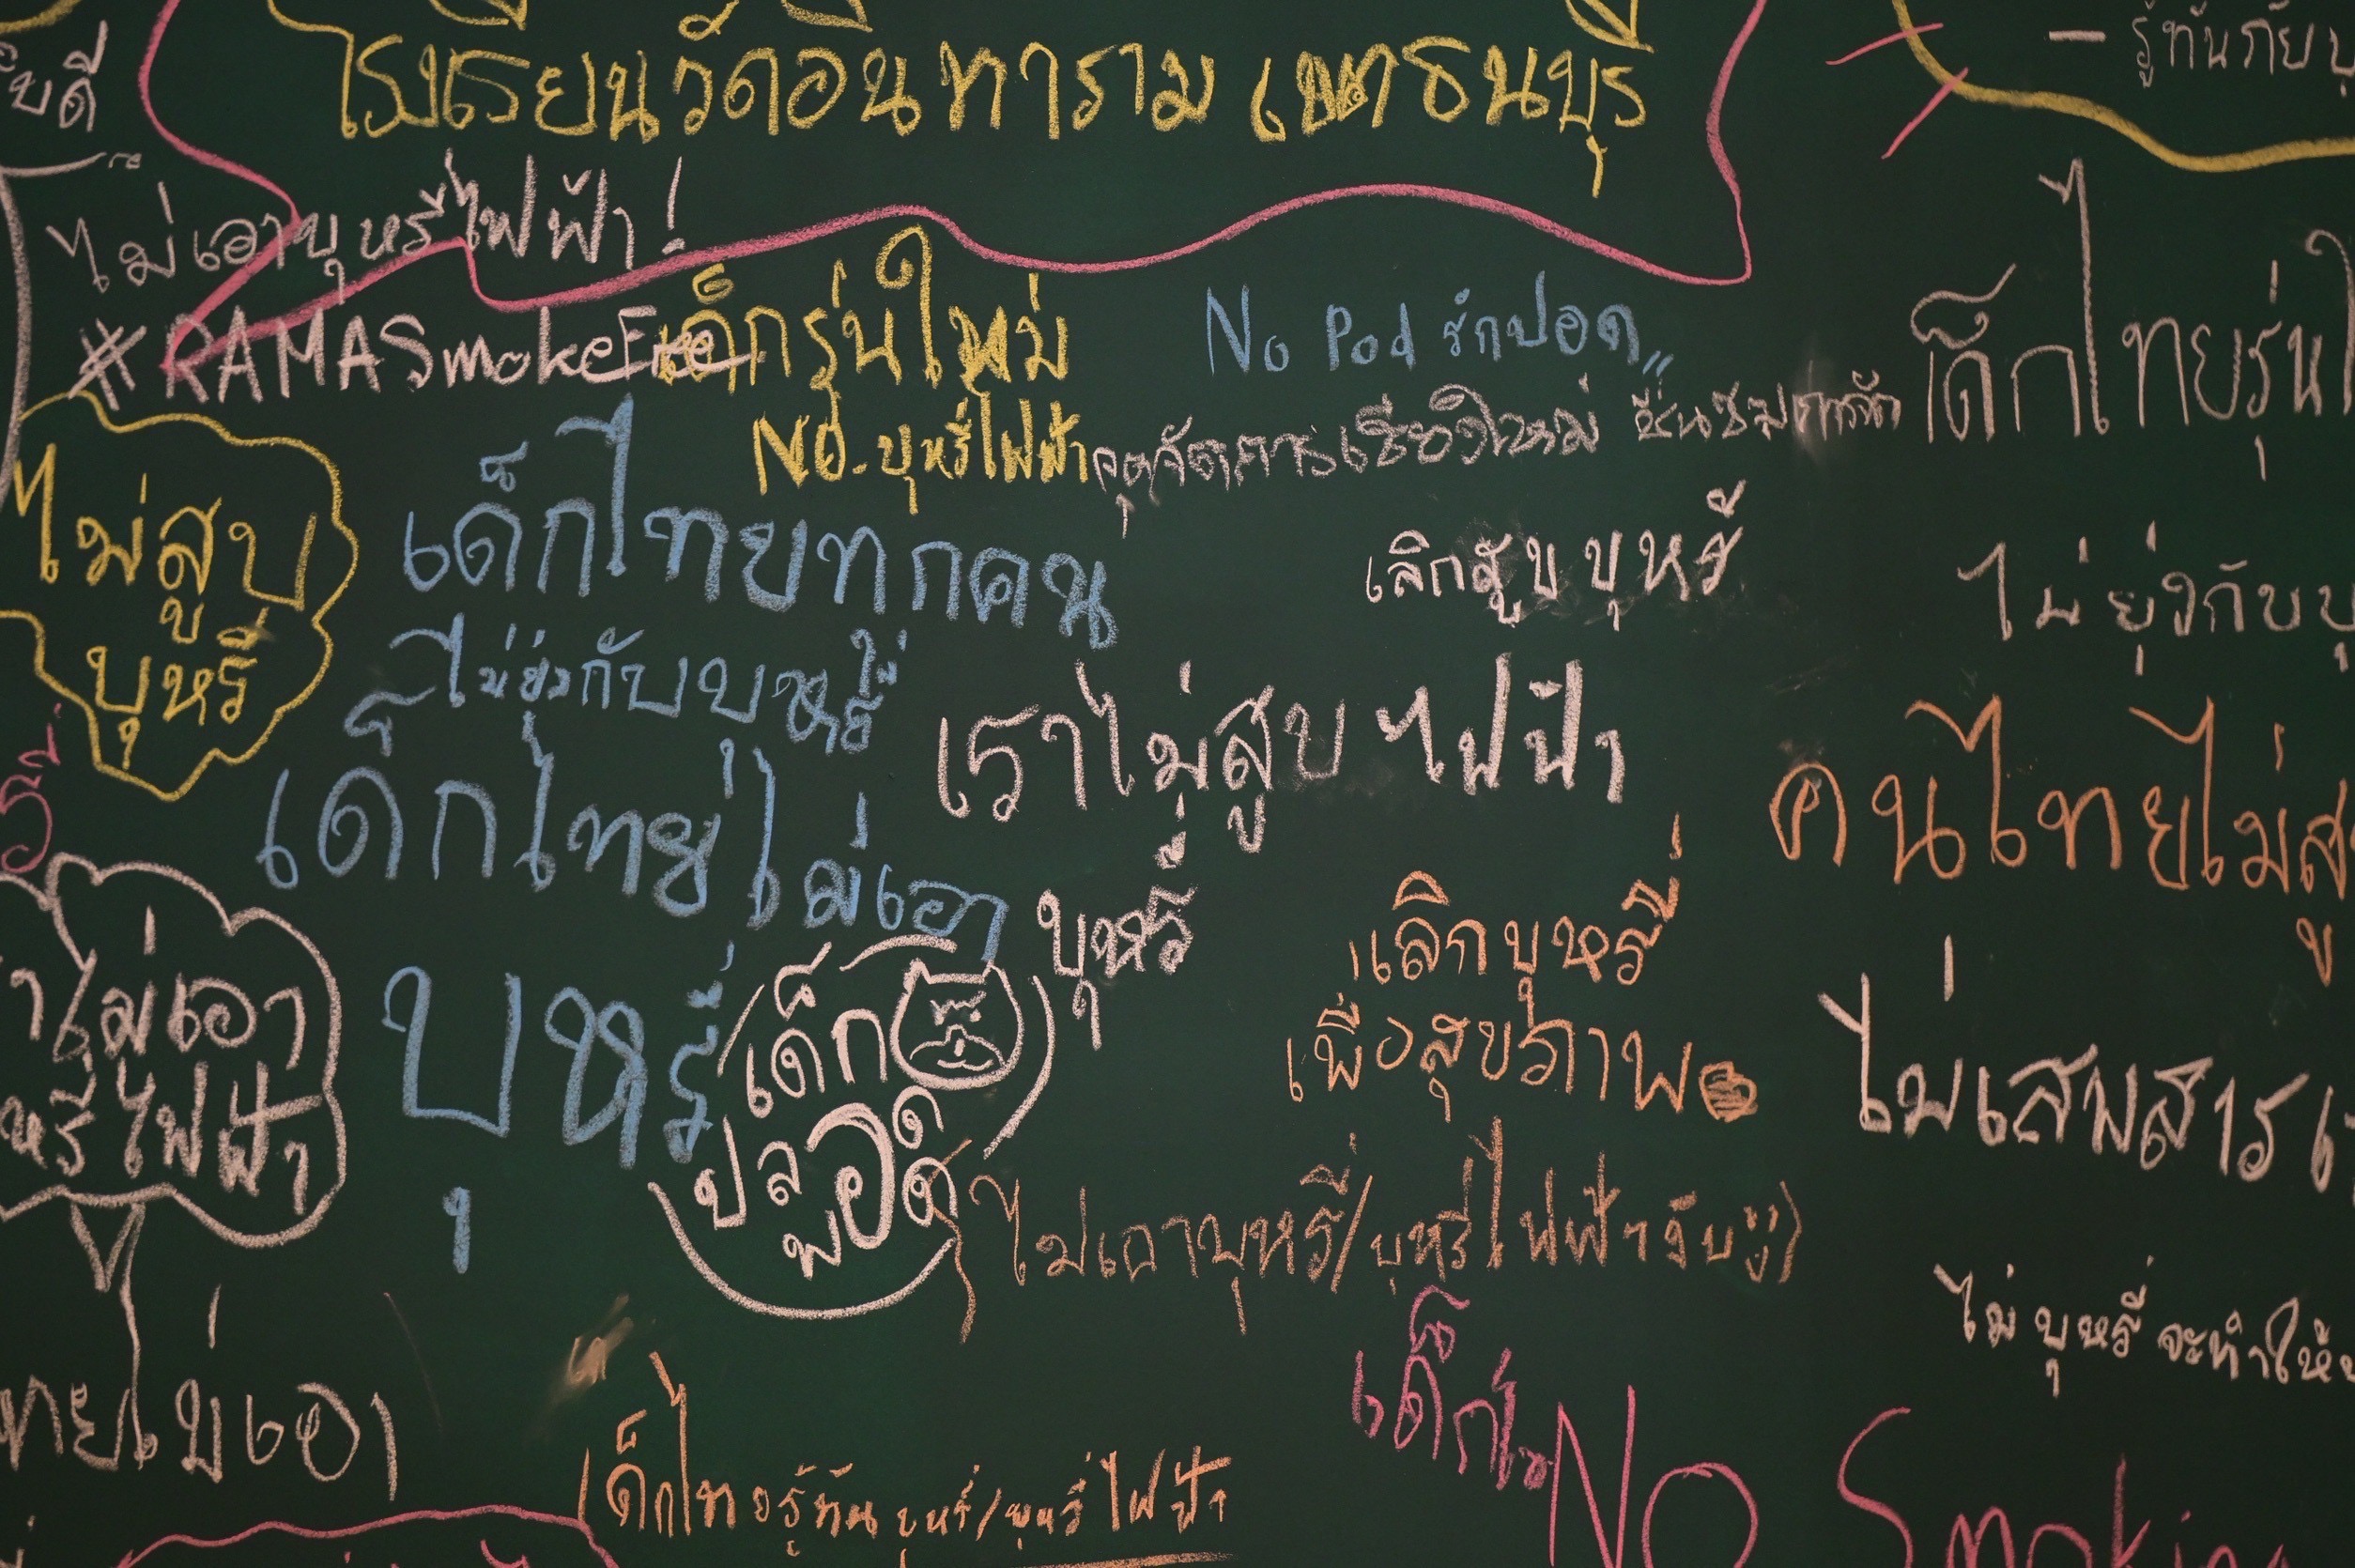 โรงเรียนวัดอินทาราม ธนบุรี
- รู้ทันภัยบุ
ไม่เอาบุหรี่ไฟฟ้า!
#RAMASmokeFree
เด็กรุ่นใหม่
NO.บุหรี่ไฟฟ้า
No Pod รักปอด,,
เด็กไทยรุ่นใ
ไม่สูบ
บุหรี่
เด็กไทยทุกคน
ไม่ยุ่งกับบุหรี่
เลิกสูบบุหรี่
ไม่ยุ่งกับบุ
เด็กไทยไม่เอา
บุหรี่
เราไม่สูบไฟฟ้า
บุหรี่
คนไทยไม่สู
เลิกบุหรี่
เพื่อสุขภาพ
ไม่เสพสาร
าไม่เอา
หรี่ไฟฟ้า
เด็ก
ปลอด
พอด
ไม่เอาบุหรี่/บุหรี่ไฟฟ้างับ
ไม่บุหรี่จะทำให้
ทยไม่เอา
เด็กไทยรู้ทันบุหรี่/บุหรี่ไฟฟ้า
NO Smokin